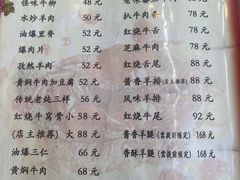 怪味牛柳 48元
水炒羊肉 50元
油爆里脊 52元
爆肉片 52元
孜然羊肉 52元
黄焖牛肉加豆腐 52元
传统老炖三样 56元
红烧牛窝骨小 58元
(店主推荐) 大 88元
油爆三仁 66元
黄焖牛肉 68元
扒牛肉条 78元
红烧牛肉 78元
芝麻牛肉 78元
红烧舌尾 88元
酱香羊排(店主推荐) 88元
风味羊排 88元
红烧牛尾 92元
酱香羊腿(需提前预定) 168元
香酥羊腿(需提前预定) 168元